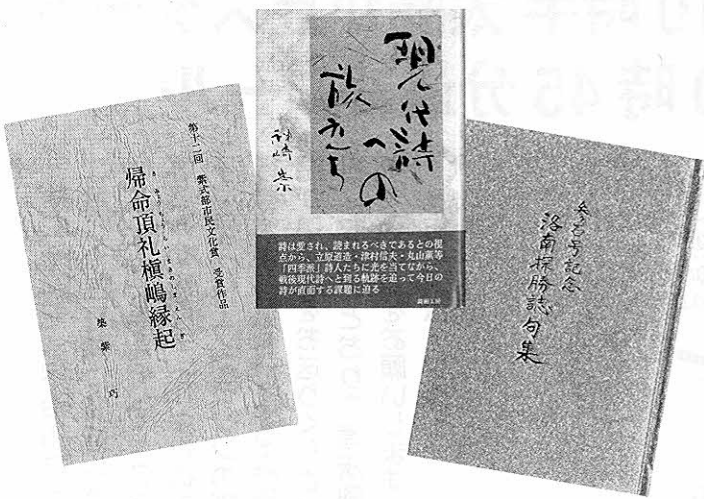 第十二回　紫式部市民文化賞　受賞作品
帰命頂礼槇嶋縁起
築紫　巧
現代詩
への
旅立ち
神崎崇
詩は愛され、読まれるべきであるとの視
点から、立原道造・津村信夫・丸山薫等
「四季派」詩人たちに光を当てながら、
戦後現代詩へと到る軌跡を追って今日の
詩が直面する課題に迫る
号記念
洛南探勝誌句集